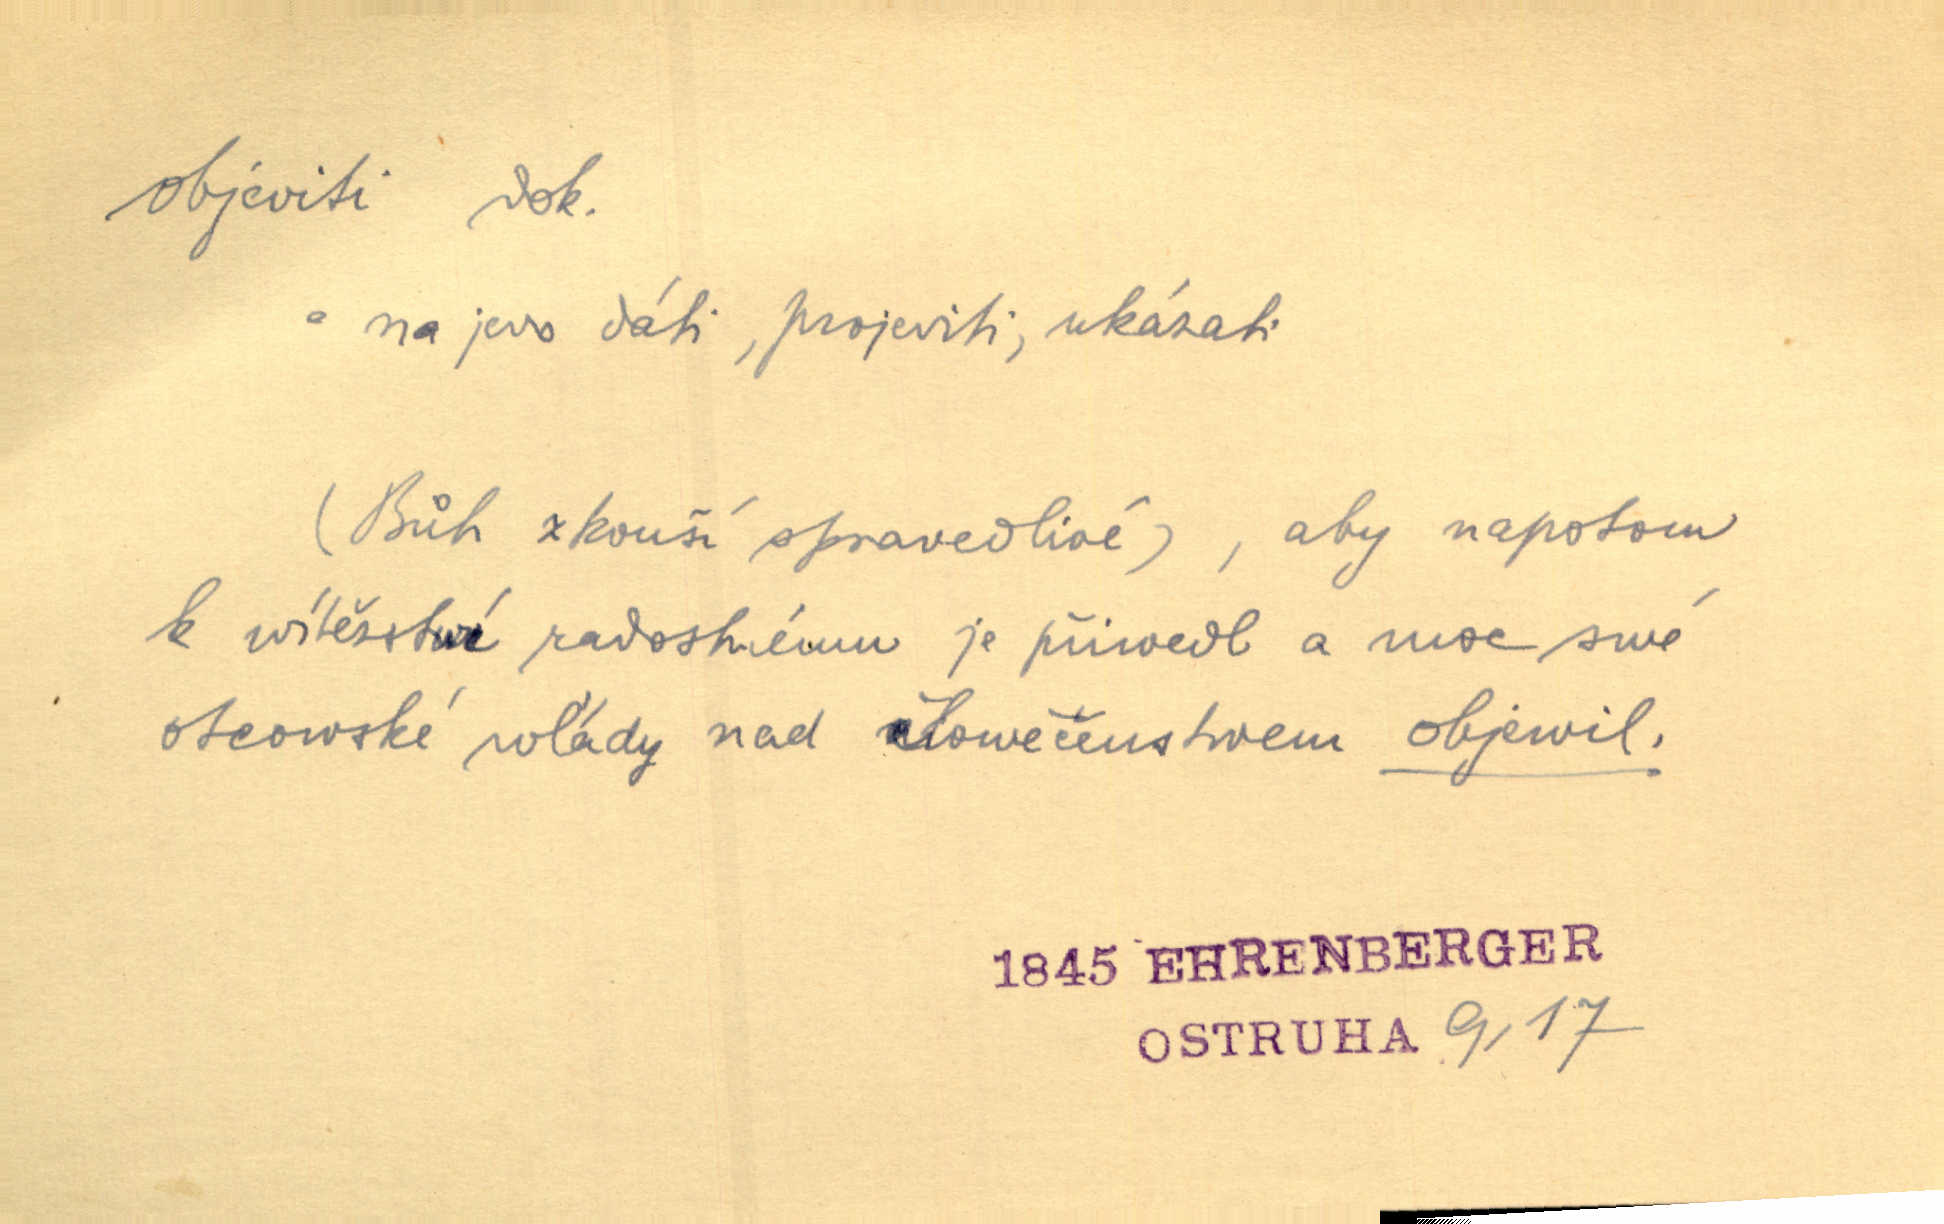 objeviti dok.
a na jevo dáti, projeviti, ukázati
(Bůh zkouší spravedlivé), aby napotom
k wítězstwí radostnému je přiwedl a moc swé
otcowské wlády nad člowěčenstwem objewil.
1845 EHRENBERGER
OSTRUHA 9, 17